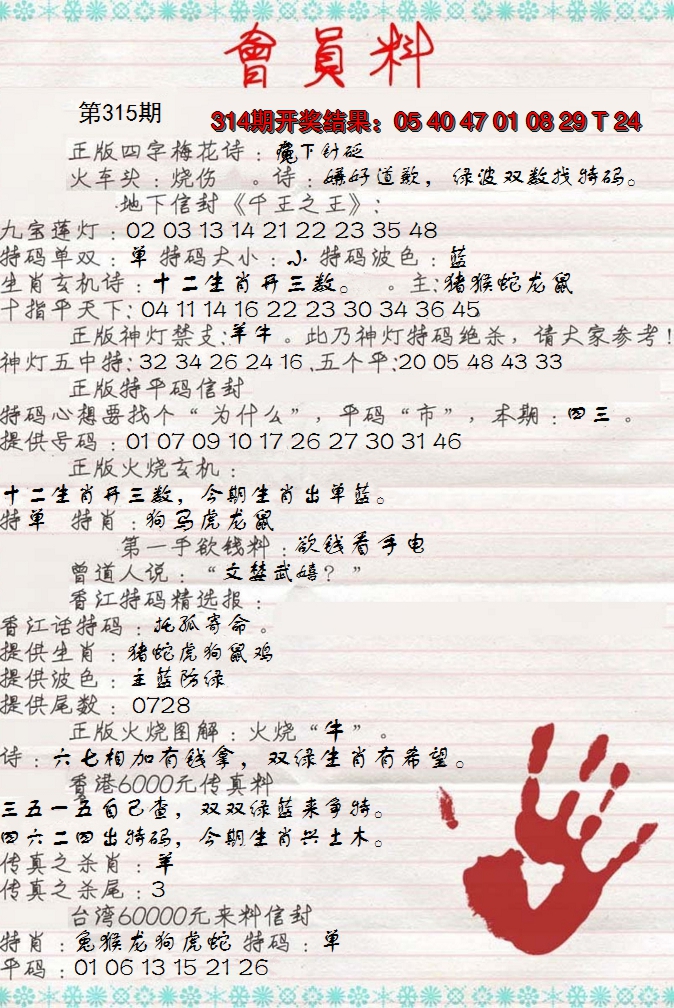 會員料
第315期
314期开奖结果：05 40 47 01 08 29 T 24
正版四字梅花诗：魔下针砭
火车头：烧伤 。诗：嫌好道歉，绿波双数找特码。
地下信封《千王之王》：
九宝莲灯：02 03 13 14 21 22 23 35 48
特码单双：单 特码大小：小 特码波色：蓝
生肖玄机诗：十二生肖开三数。 。主:猪猴蛇龙鼠
十指平天下: 04 11 14 16 22 23 30 34 36 45
正版神灯禁支:羊牛 。此乃神灯特码绝杀，请大家参考!
神灯五中特:32 34 26 24 16 .五个平:20 05 48 43 33
正版特平码信封
特码心想要找个“为什么”，平码“市”，本期：四三 。
提供号码：01 07 09 10 17 26 27 30 31 46
正版火烧玄机：
十二生肖开三数，今期生肖出单蓝。
特单 特肖：狗马虎龙鼠
第一手欲钱料：欲钱看手电
曾道人说：“文楚武嬉？”
香江特码精选报：
香江话特码：托孤寄命。
提供生肖：猪蛇虎狗鼠鸡
提供波色：主蓝防绿
提供尾数：0728
正版火烧图解：火烧“牛”。
诗：六七相加有钱拿，双绿生肖有希望。
香港6000元传真料
三五一五自己查，双双绿蓝来争特。
四六二四出特码，今期生肖兴土木。
传真之杀肖：羊
传真之杀尾：3
台湾60000元来料信封
特肖：兔猴龙狗虎蛇 特码：单
平码：01 06 13 15 21 26